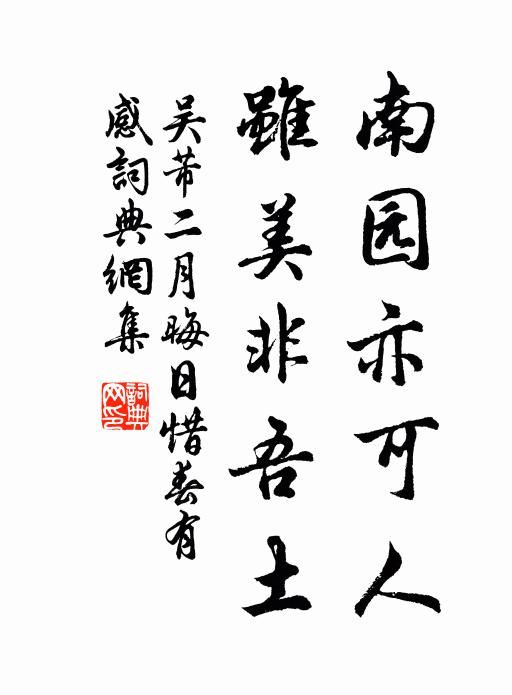 南园亦可人
雖美非吾土
吴芾二月晦日惜春有
感詞典網集
詞典网印